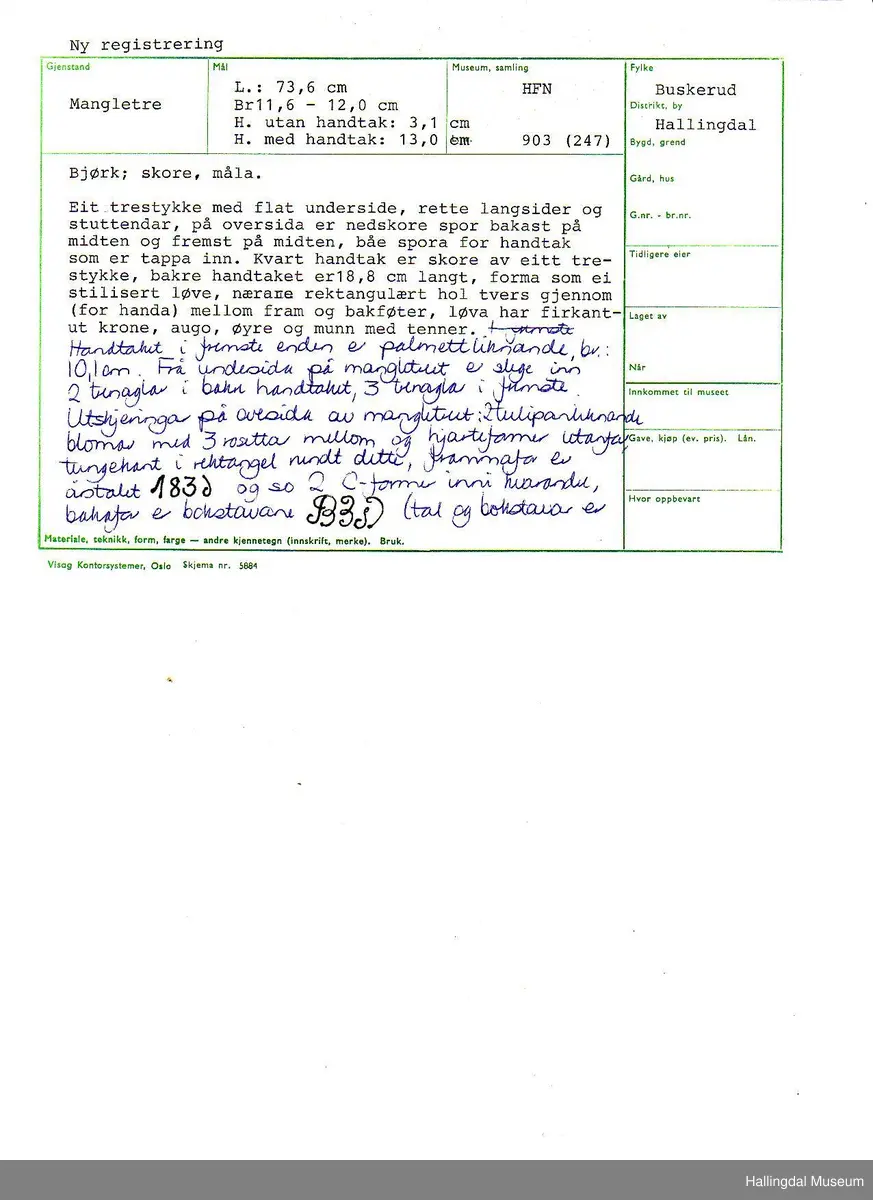 Ny registrering
Gjenstand
Mangletre
Mål
L.: 73,6 cm
Br11,6 - 12,0 cm
H. utan handtak: 3,1 cm
H. med handtak: 13,0 cm
Museum, samling
HFN
903 (247)
Fylke
Buskerud
Distrikt, by
Hallingdal
Bygd, grend
Gård, hus
G.nr. - br.nr.
Tidligere eier
Laget av
Når
Innkommet til museet
Gave, kjøp (ev. pris). Lån.
Hvor oppbevart
Bjørk; skore, måla.
Eit trestykke med flat underside, rette langsider og
stuttendar, på oversida er nedskore spor bakast på
midten og fremst på midten, båe spora for handtak
som er tappa inn. Kvart handtak er skore av eitt tre-
stykke, bakre handtaket er18,8 cm langt, forma som ei
stilisert løve, nærame rektangulært hol tvers gjennom
(for handa) mellom fram og bakføter, løva har firkant-
ut krone, augo, øyre og munn med tenner.
Handtaket i fremste enden er palmettliknande, br.:
10,1cm. Frå undesida på mangletreet er slege inn
2 trenagla i bakre handtaket, 3 trenagla i fremste.
Utskjeringa på oversida av mangletreet: 2tulipanliknande
blomar med 3 rosetta mellom og hjarteformer utanfor,
tungekant i rektangel rundt dette, frammafor er
årstalet 183 og so 2 C-former inni kvarandre,
bakafor er bokstavane (tal og bokstavar er
Materiale, teknikk, form, farge — andre kjennetegn (innskrift, merke). Bruk.
Visag Kontorsystemer, Oslo Skjema nr. 5884
Hallingdal Museum